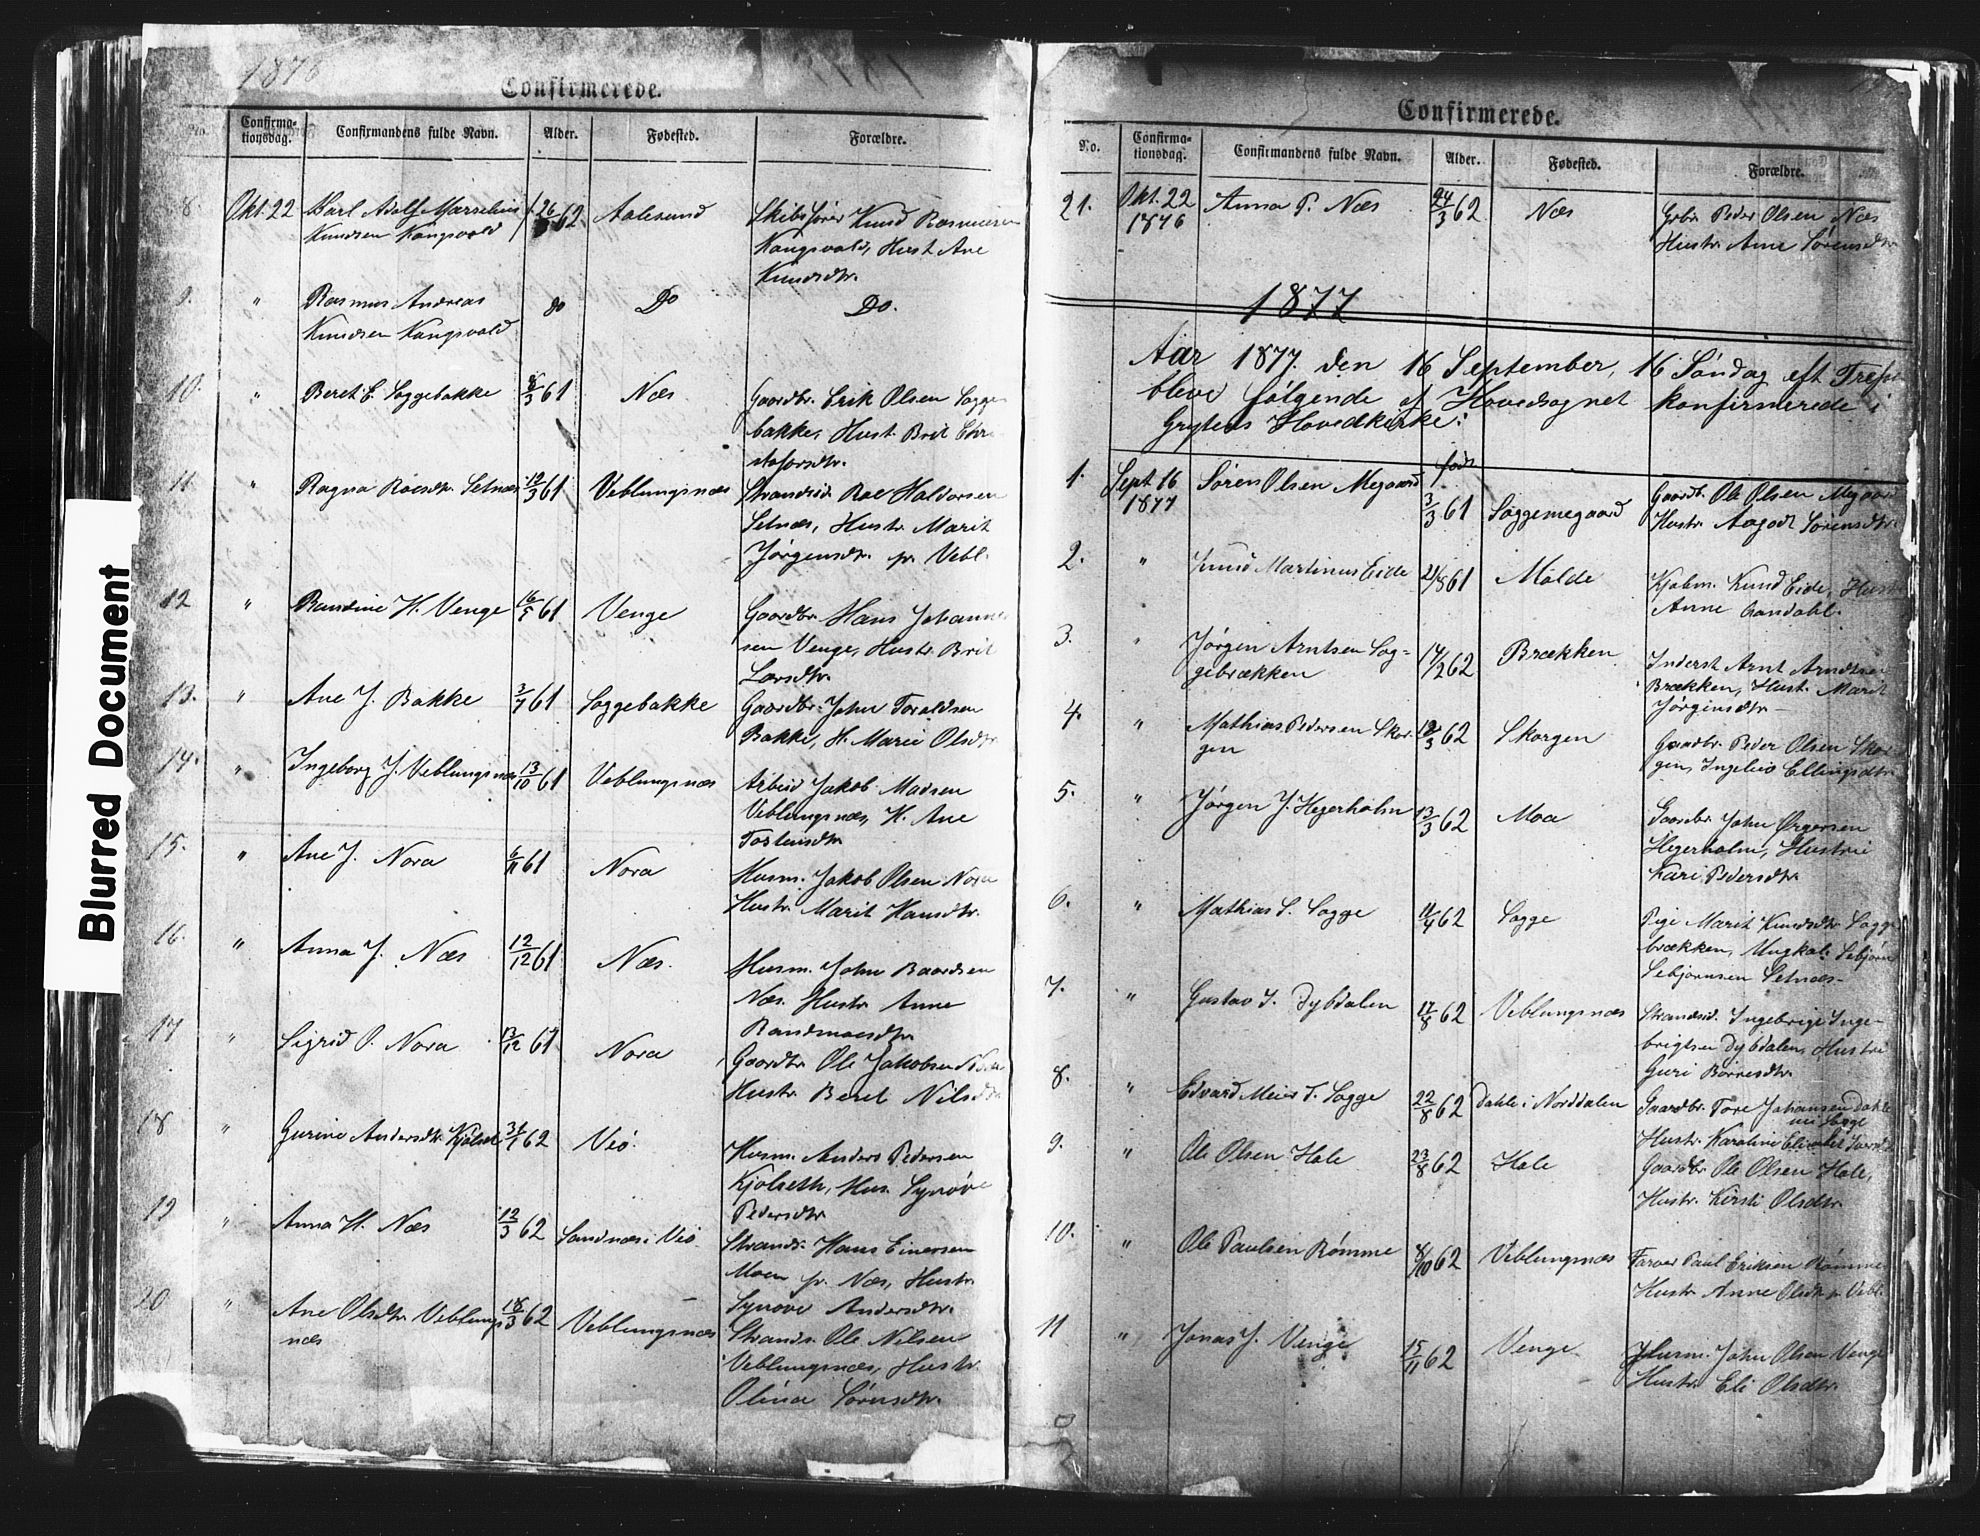 Blurred Document
1876
Confirmerede.
No.
Confirma-
tionsdag.
Confirmandens fulde Navn.
Alder.
Fødested.
Forældre.
8.
Okt. 22
Karl Adolf Marselius
Knudsen Kongsvold
f 26 62
Aalesund
Skibsfører Knud Rasmussen
Kongsvold, Hust Ane
Knudsdtr.
9.
"
Rasmus Andreas
Knudsen Kongsvold
do
Do
Do.
10.
"
Beret E. Soggebakke
8/3 61
Næs
Gaardbr. Erik Olsen Sogge
bakke, Hust. Brit Chri
stofersdtr.
11
"
Ragna Roesdtr. Setnæs
12/3 61
Veblungsnæs
Strandsid. Roe Haldorsen
Setnæs, Hustr. Marit
Jørgensdtr. pr. Vebl.
12
"
Randine H. Venge
16/5 61
Venge
Gaardbr. Hans Johannes
sen Venge, Hustr. Brit
Larsdtr.
13.
"
Ane J. Bakke
3/7 61
Soggebakke
Gaardbr. John Toraldsen
Bakke, H. Marie Olsdtr
14.
"
Ingeborg J. Veblungsnæs
13/10 61
Veblungsnæs
Arbeid Jakob Madsen
Veblungsnæs, H. Ane
Tostensdtr
15.
"
Ane J. Nora
6/11 61
Nora
Husm. Jakob Olsen Nora
Hustr. Marit Hansdtr.
16.
"
Anna J. Næs
12/12 61
Næs.
Husm. John Baardsen
Næs. Hustr. Anne
Randmoesdtr
17
"
Sigrid O. Nora
13/12 61
Nora
Gaardbr. Ole Jakobsen Nora
Hustr. Beret Nilsdtr
18
"
Gurine Andersdtr. Kjølset
31/1 62
Veø
Husm. Anders Pedersen
Kjølseth, Hus. Synøve
Pedersdtr
19
"
Anna H. Næs
12/3 62
Sandnæs i Veø
Strands. Hans Einersen
Moen pr. Næs, Hustr.
Synøve Andersdtr.
20
"
Ane Olsdtr. Veblungs
næs
18/3 62
Veblungsnæs
Strands. Ole Nilsen
Veblungsnæs, Hustr.
Olina Sørensdtr.
Confirmerede.
No.
Confirma-
tionsdag.
Confirmandens fulde Navn.
Alder.
Fødested.
Forældre.
21.
Okt. 22
1876
Anna P. Næs
24/3 62
Næs
Gbr. Peder Olsen Næs
Hustr. Anne Sørensdtr
1877
Aar 1877. den 16 September, 16 Søndag eft Tref.
bleve følgende af Hovedsognet konfirmerede i
Gryten's Hovedkirke:
1.
Sept 16
1877
Søren Olsen Megaard
født
3/3 61
Soggemegaard
Gaardb. Ole Olsen Megaard
Hustr. Aagodt Sørensdtr.
2.
"
Knud Martinus Eide
21/8 61
Molde
Kjøbm. Knud Eide, Hustr
Anne
3.
"
Jørgen Arntsen Sog-
gebrækken
14/2 62
Brækken
Inderst Arnt Arndtsen
Brækken, Hust. Marit
Jørginsdtr
4.
"
Mathias Pedersen Skor-
gen
12/3 62
Skorgen
Gaardbr. Peder Olsen Skor
gen, Ingeleiv Ellingsdtr
5.
"
Jørgen J. Hegerholm
13/3 62
Moa
Gaardbr. John Ørgersen
Hegerholm, Hustrue
Kari Pedersdtr
6.
"
Mathias S. Sogge
11/4 62
Sogge
Pige Marit Knudsdtr Sogge
brækken, Ungkal: Sebjørn
Sebjørnsen Setnæs-
7.
"
Gustav I. Dybdalen
17/8 62
Veblungsnæs
Strandsid. Ingebrigt Inge-
brigtsen Dybdalen, Hustru
Guri Baaresdtr.
8.
"
Edvard Meier T. Sogge
22/8 62
Dahle i Norddalen
Gaardbr. Tore Johansen Dahle
nu Sogge
Hustr. Karoline Elisabet
9.
"
Ole Olsen Hole
23/8 62
Hole
Gaardbr Ole Olsen Hole,
Hustr. Kirsti Olsdtr.
10.
"
Ole Paulsen Rømme
8/10 62
Veblungsnæs
Farver Paul Eriksen Rømme
Hustr. Anne Olsdtr p. Vebl.
11
"
Jonas J. Venge
15/11 62
Venge
Husm. John Olsen Venge
Hustr. Eli Olsdtr.